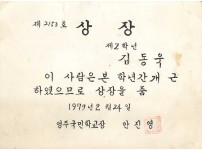 제2153호 상 장
제2학년
김동욱
이 사람은 본 학년간 개근
하였으므로 상장을 줌
1979년 2월 24일
영주국민학교장 안진영